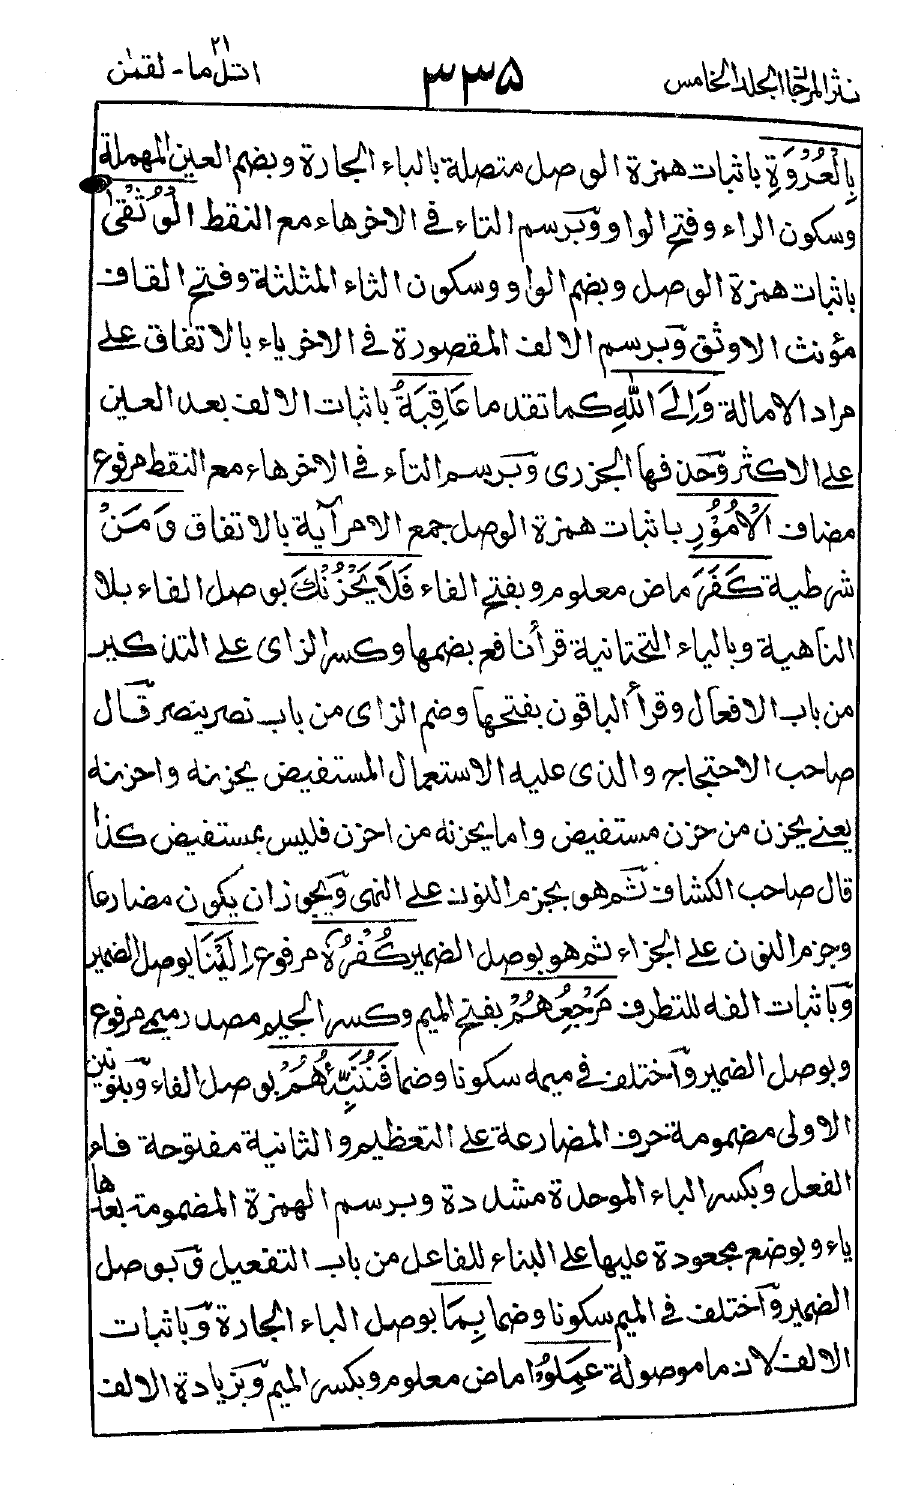 نثر المرجان المجلد الخامس
٣٣٥
اتل ما ٢١ - لقمٰن
بِالْعُرْوَةِ باثبات همزة الوصل متصلة بالباء الجارة وبضم العين المهملة
وسكون الراء وفتح الواو وبرسم التاء في الاخر هاء مع النقط الْوُثْقٰى
باثبات همزة الوصل وبضم الواو وسكون الثاء المثلثة وفتح القاف
مؤنث الاوثق وبرسم الالف المقصورة في الاخر ياء بالاتفاق على
مراد الامالة وَاِلَى اللّٰهِ كما تقدما عَاقِبَةُ باثبات الالف بعد العين
على الاكثر وحذفها الجزرى وبرسم التاء في الاخر هاء مع النقط مرفوع
مضاف الْاُمُوْرِ باثبات همزة الوصل جمع الامر آية بالاتفاق وَمَنْ
شرطية كَفَرَ ماض معلوم وبفتح الفاء فَلَا يَحْزُنْكَ بوصل الفاء بلا
الناهية وبالياء التحتانية قرأ نافع بضمها وكسر الزاى على التذكير
من باب الافعال وقرأ الباقون بفتحها وضم الزاى من باب نصر ينصر قال
صاحب الاحتجاج والذى عليه الاستعمال المستفيض يحزنه واحزنه
يعنے يحزن من حزن مستفيض واما يحزنه من احزن فليس بمستفيض كذا
قال صاحب الكشاف ثم هو بجزم النون على النهى ويجوز ان يكون مضارعا
وجزم النون على الجزاء ثم هو بوصل الضمير كُفْرُهٗ مرفوع اِلَيْنَا بوصل الضمير
وباثبات الفه للتطرف مَرْجِعُهُمْ بفتح الميم وكسر الجيم مصدر ميمى مرفوع
وبوصل الضمير واختلف في ميمه سكونا وضما فَنُنَبِّئُهُمْ بوصل الفاء وبنونين
الاولى مضمومة حرف المضارعة على التعظيم والثانية مفتوحة فاء
الفعل وبكسر الباء الموحدة مشددة وبرسم الهمزة المضمومة بعدها
ياء وبوضع مجعودة عليها على البناء للفاعل من باب التفعيل وبوصل
الضمير واختلف في الميم سكونا وضما بِمَا بوصل الباء الجارة وباثبات
الالف لان ما موصولة عَمِلُوْا ماض معلوم وبكسر الميم وبزيادة الالف